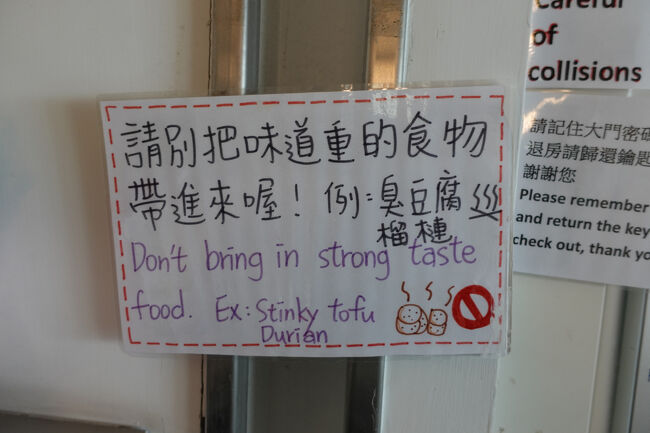 請別把味道重的食物
帶進來喔！例：臭豆腐
榴槤
Don't bring in strong taste
food. Ex: Stinky tofu
Durian
Careful
of
collisions
請記住大門密碼
退房請歸還鑰匙
謝謝您
Please remember
and return the key
check out, thank yo